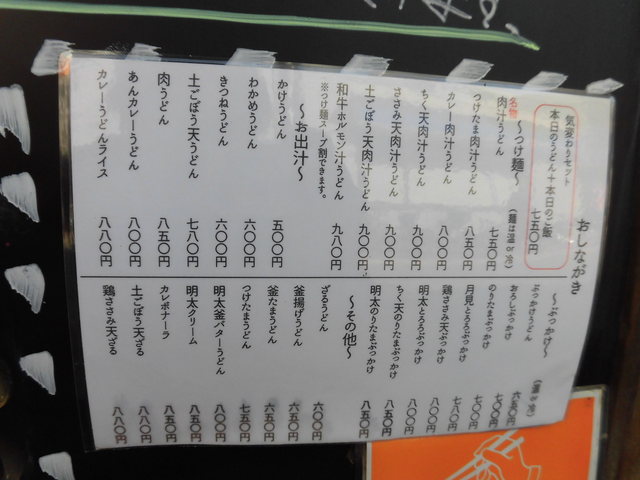 おしながき
気変わりセット
本日のうどん＋本日のご飯
七五〇円
～つけ麺～（麺は温or冷）
名物 肉汁うどん 七五〇円
つけたま肉汁うどん 八五〇円
カレー肉汁うどん 八〇〇円
ちく天肉汁うどん 九〇〇円
ささみ天肉汁うどん 九〇〇円
土ごぼう天肉汁うどん 九〇〇円
和牛ホルモン汁うどん 九八〇円
※つけ麺スープ割できます。
～お出汁～
かけうどん 五〇〇円
わかめうどん 六〇〇円
きつねうどん 六〇〇円
土ごぼう天うどん 七八〇円
肉うどん 八五〇円
あんカレーうどん 八〇〇円
カレーうどんライス 八八〇円
～ぶっかけ～（温or冷）
ぶっかけうどん 六五〇円
おろしぶっかけ 七〇〇円
のりたまぶっかけ 七〇〇円
月見とろろぶっかけ 七八〇円
鶏ささみ天ぶっかけ 八〇〇円
明太とろろぶっかけ 八〇〇円
ちく天のりたまぶっかけ 八五〇円
明太のりたまぶっかけ 八五〇円
～その他～
ざるうどん 六〇〇円
釜揚げうどん 六五〇円
釜たまうどん 六五〇円
つけたまうどん 七五〇円
明太釜バターうどん 八〇〇円
明太クリーム 八五〇円
カレボナーラ 八五〇円
土ごぼう天ざる 八八〇円
鶏ささみ天ざる 八八〇円